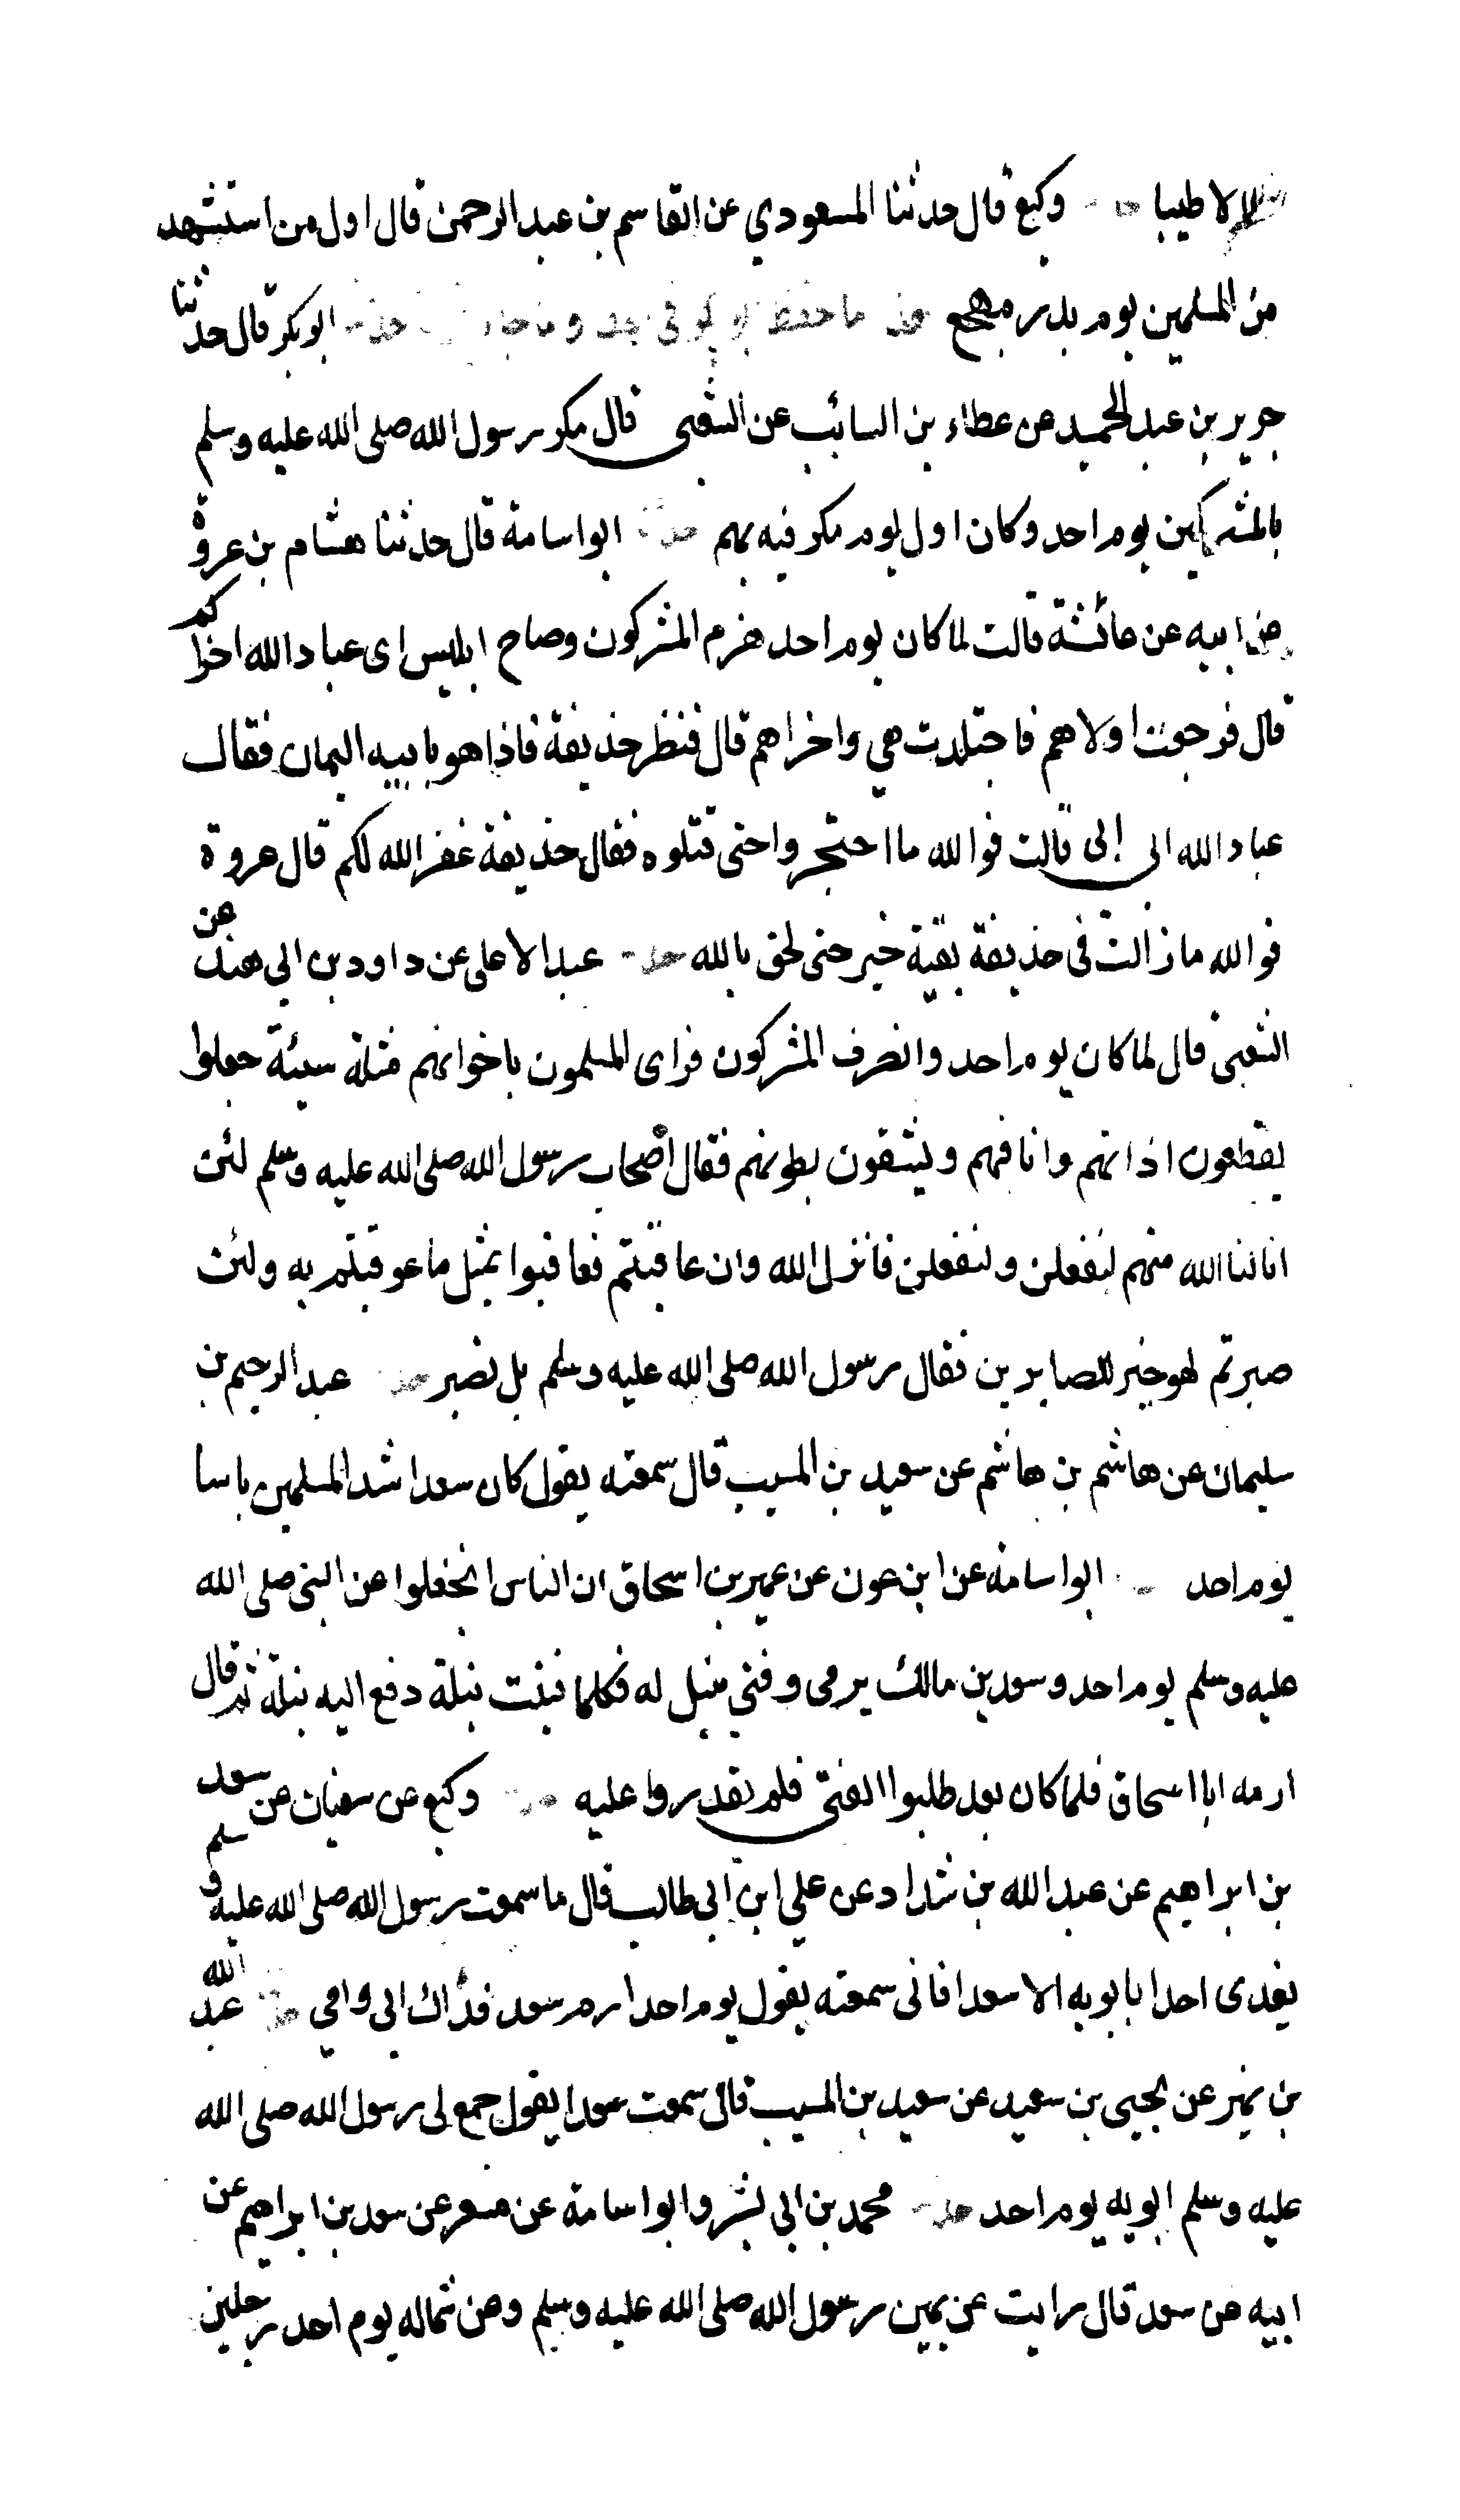 الا طيبا حدثنا وكيع قال حدثنا المسعودي عن القاسم بن عبد الرحمن قال اول من استشهد
من المسلمين يوم بدر مهجع هذا ما حفظ ابو بكر في احد وما جاء فيها حدثنا ابو بكر قال حدثنا
جرير بن عبد الحميد عن عطاء بن السائب عن الشعبى قال مكر رسول الله صلى الله عليه وسلم
بالمشركين يوم احد وكان اول يوم مكر فيه بهم حدثنا ابو اسامة قال حدثنا هشام بن عروة
عن ابيه عن عائشة قالت لما كان يوم احد هزم المشركون وصاح ابليس اى عباد الله اخراكم
قال فرجعت اولاهم فاجتلدت هي واخراهم قال فنظر حذيفة فاذا هو بابيه اليمان فقال
عباد الله ابى ابى قالت فوالله ما احتجروا حتى قتلوه فقال حذيفة غفر الله لكم قال عروة
فوالله ما زالت فى حذيفة بقية خير حتى لحق بالله حدثنا عبد الاعلى عن داود بن ابي هند عن
الشعبى قال لما كان يوم احد وانصرف المشركون فراى المسلمون باخوانهم مثلة سيئة جعلوا
يقطعون اذانهم وانافهم ويشقون بطونهم فقال اصحاب رسول الله صلى الله عليه وسلم لئن
انالنا الله منهم لنفعلن ولنفعلن فانزل الله وان عاقبتم فعاقبوا بمثل ما عوقبتم به ولئن
صبرتم لهو خير للصابرين فقال رسول الله صلى الله عليه وسلم بل نصبر حدثنا عبد الرحيم بن
سليمان عن هاشم بن هاشم عن سعيد بن المسيب قال سمعته يقول كان سعد اشد المسلمين باسا
يوم احد ابو اسامة عن ابن عون عن عمير بن اسحاق ان الناس انجفلوا عن النبى صلى الله
عليه وسلم يوم احد وسعد بن مالك يرمى وفتى ينبل له فكلما فنيت نبلة دفع اليه نبلة ثم قال
ارمه ابا اسحاق فلما كان بعد طلبوا الفتى فلم يقدروا عليه حدثنا وكيع عن سفيان عن سعد
بن ابراهيم عن عبد الله بن شداد عن علي ابن ابى طالب قال ما سمعت رسول الله صلى الله عليه وسلم
يفدى احدا بابويه الا سعدا فانى سمعته يقول يوم احد ارم سعد فداك ابى وامي حدثنا عبد الله
بن نمير عن يحيى بن سعيد عن سعيد بن المسيب قال سمعت سعدا يقول جمع لى رسول الله صلى الله
عليه وسلم ابويه يوم احد حدثنا محمد بن ابي بشر وابو اسامة عن مسعر عن سعد بن ابراهيم عن
ابيه عن سعد قال رايت عن يمين رسول الله صلى الله عليه وسلم وعن شماله يوم احد رجلين